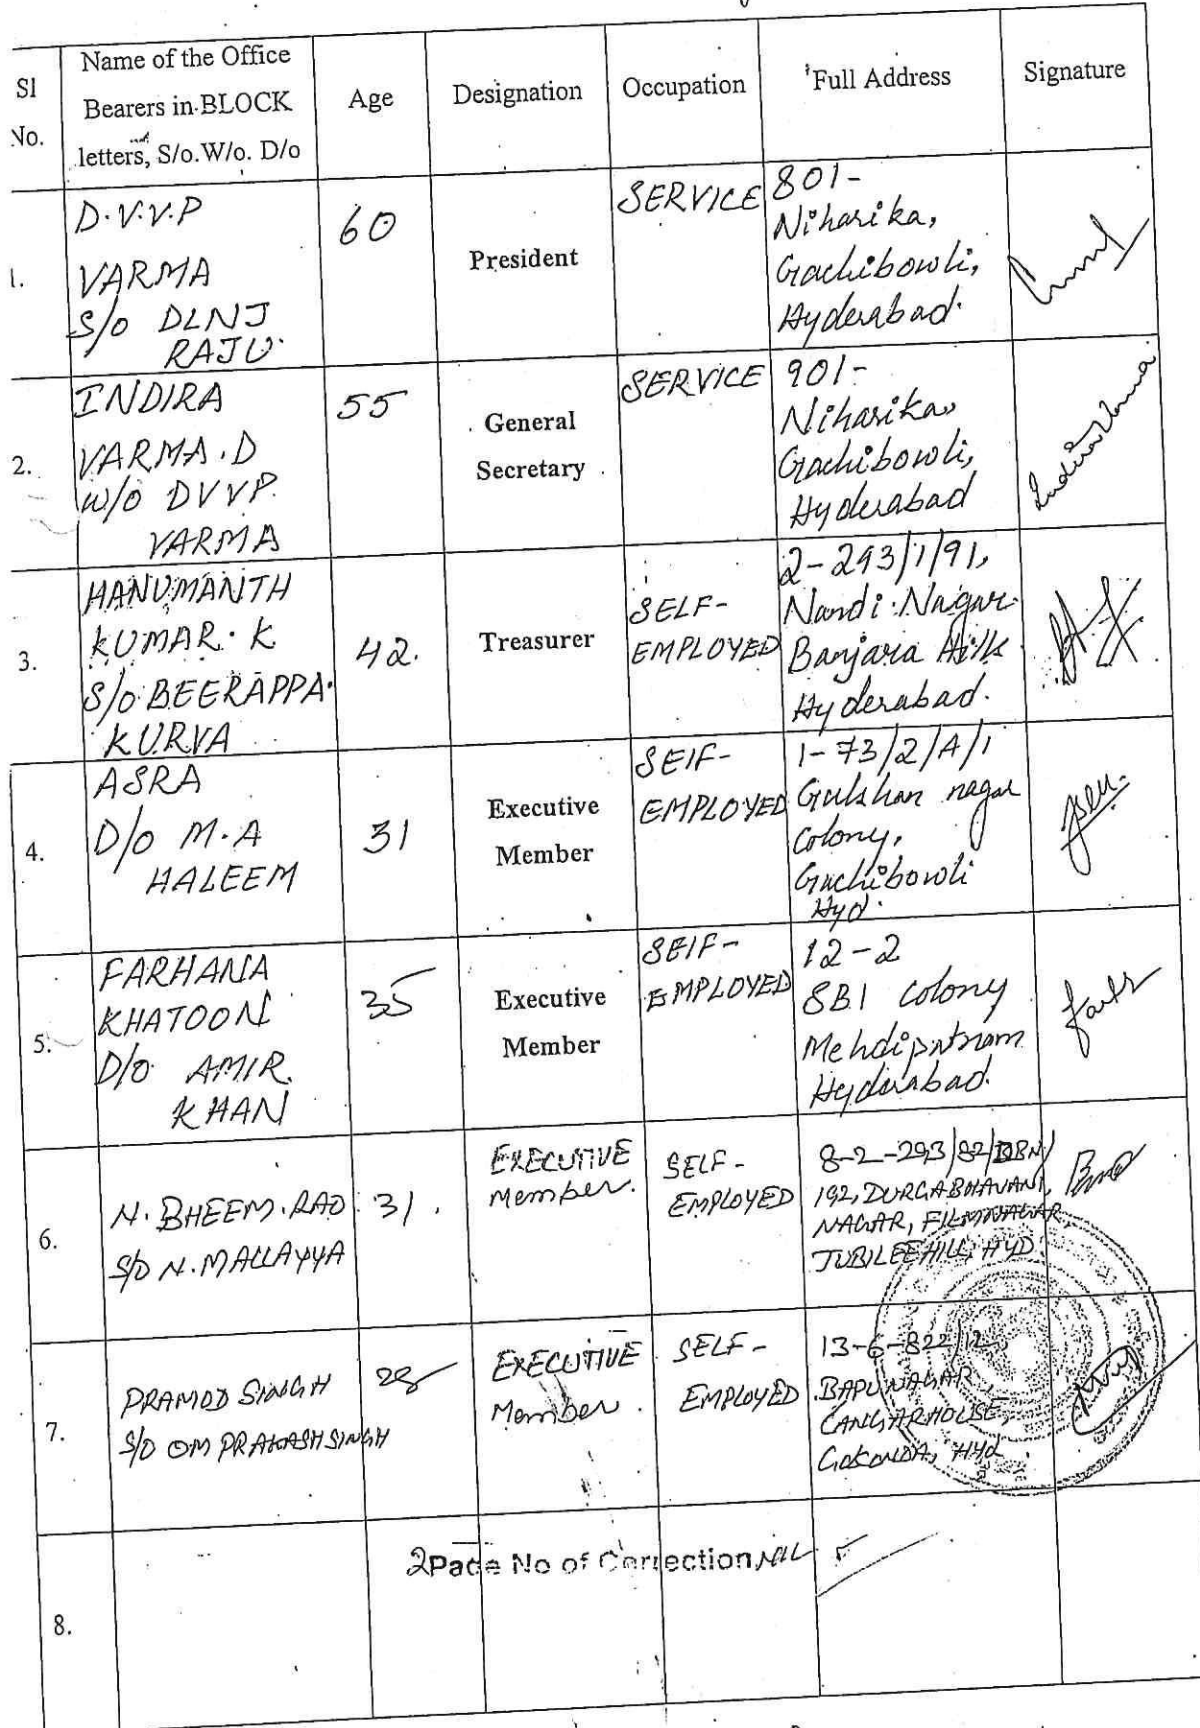 Sl No.
Name of the Office Bearers in BLOCK letters, S/o. W/o. D/o
Age
Designation
Occupation
Full Address
Signature
1.
D.V.V.P
VARMA
S/o DLNJ
RAJU.
60
President
SERVICE
801-
Niharika,
Gachibowli,
Hyderabad.
2.
INDIRA
VARMA.D
W/o DVVP.
VARMA
55
General
Secretary
SERVICE
901-
Niharika,
Gachibowli,
Hyderabad
Indira Varma
3.
HANUMANTH
KUMAR. K
S/o BEERAPPA.
KURVA
42.
Treasurer
SELF-
EMPLOYED
2-293/1/91,
Nandi Nagar
Banjara Hills
Hyderabad.
4.
ASRA
D/o M.A
HALEEM
31
Executive
Member
SEIF-
EMPLOYED
1-73/2/A/1
Gulshan nagar
Colony,
Gachibowli
Hyd.
5.
FARHANA
KHATOON
D/o AMIR
KHAN
35
Executive
Member
SEIF-
EMPLOYED
12-2
SBI Colony
Mehdipatnam
Hyderabad.
6.
N. BHEEM. RAO
S/O N. MALLAYYA
31.
EXECUTIVE
Member.
SELF-
EMPLOYED
8-2-293/82/DBN/
192, DURGABHAVANI,
NAGAR, FILMNAGAR,
JUBILEEHILL, HYD.
7.
PRAMOD SINGH
S/O OM PRAKASH SINGH
28
EXECUTIVE
Member.
SELF-
EMPLOYED
13-6-822/12,
BAPUNAGAR,
LANGARHOUSE,
GOLCONDA, HYd.
8.
2 Page No of Correction NIL